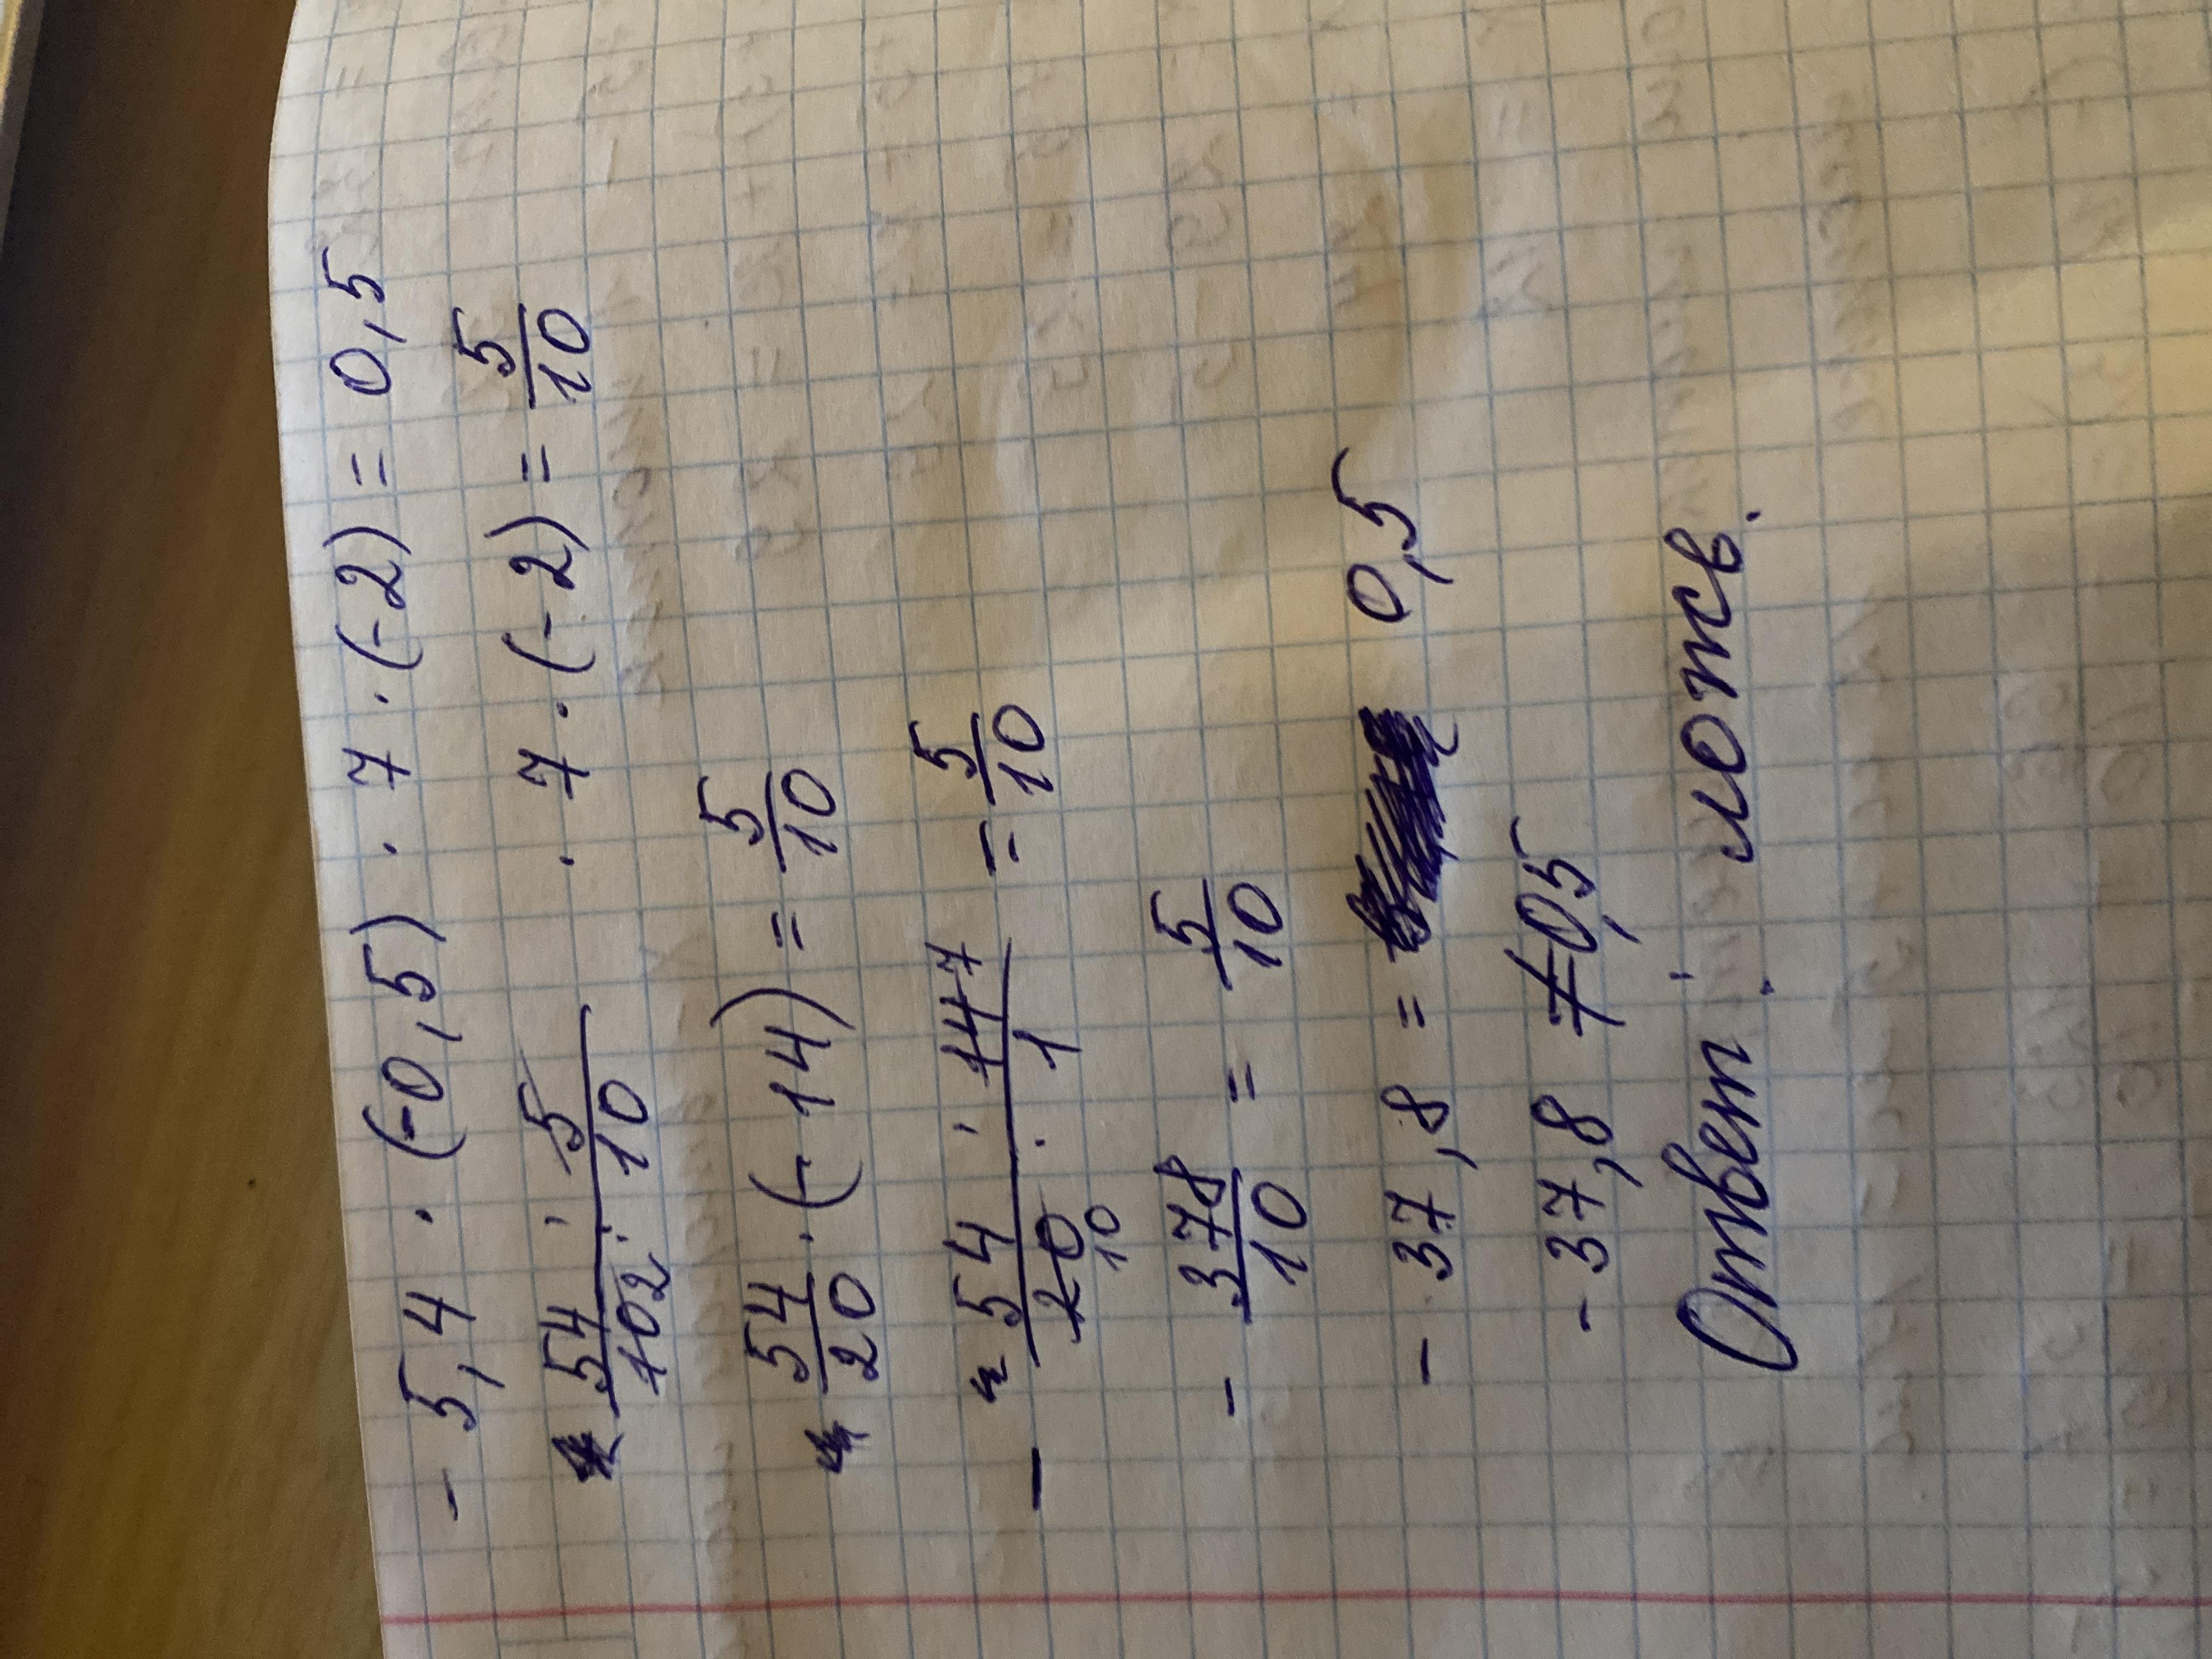 - 5,4 · (-0,5) · 7 · (-2) = 0,5
54 · 5 / 102 · 10 · 7 · (-2) = 5/10
54/20 · (-14) = 5/10
- 54 · 147 / 20 10 · 1 = 5/10
- 378/10 = 5/10
- 37,8 = 0,5
- 37,8 ≠ 0,5
Ответ: потв.